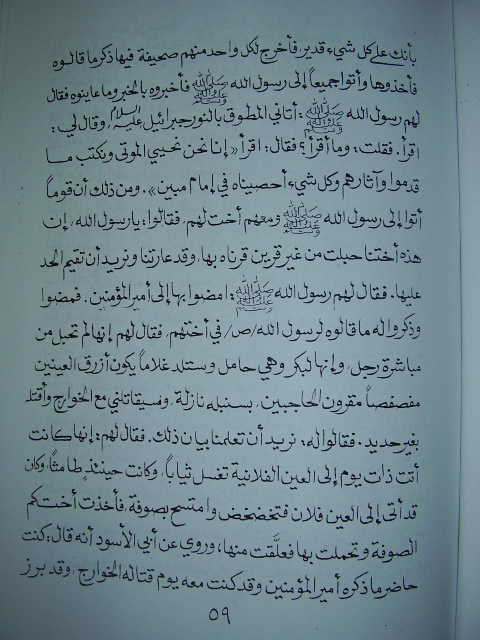 بأنك على كل شيء قدير، فأخرج لكل واحد منهم صحيفة فيها ذكر ما قالوه
فأخذوها وأتوا جميعاً إلى رسول الله ﷺ فأخبروه بالخبر وما عاينوه فقال
لهم رسول الله ﷺ: أتاني المطوق بالنور جبرائيل عليه السلام، وقال لي:
اقرأ. فقلت: وما أقرأ؟ فقال: اقرأ «إنا نحن نحيي الموتى ونكتب ما
قدموا وآثارهم وكل شيء أحصيناه في إمام مبين». ومن ذلك أن قوماً
أتوا إلى رسول الله ﷺ ومعهم أخت لهم، فقالوا: يا رسول الله، إن
هذه أختنا حبلت من غير قرين قرناه بها، وقد عارتنا ونريد أن تقيم الحد
عليها. فقال لهم رسول الله ﷺ: امضوا بها إلى أمير المؤمنين. فمضوا
وذكروا له ما قالوه لرسول الله/ص/ في أختهم، فقال لهم إنها لم تحبل من
مباشرة رجل، وإنها لبكر وهي حامل وستلد غلاماً يكون أزرق العينين
مفصفصاً مقرون الحاجبين، بسنبله نازلة، وسيقاتلني مع الخوارج وأقتله
بغير حديد. فقالوا له: نريد أن تعلمنا بيان ذلك. فقال لهم: إنها كانت
أتت ذات يوم إلى العين الفلانية تغسل ثياباً، وكانت حينئذ طامثاً، وكان
قد أتى إلى العين فلان فتخضخض وامتسح بصوفة، فأخذت أختكم
الصوفة وتحملت بها فعلَّقت منها، وروي عن أبي الأسود أنه قال: كنت
حاضر ما ذكره أمير المؤمنين وقد كنت معه يوم قتاله الخوارج، وقد برز
٥٩